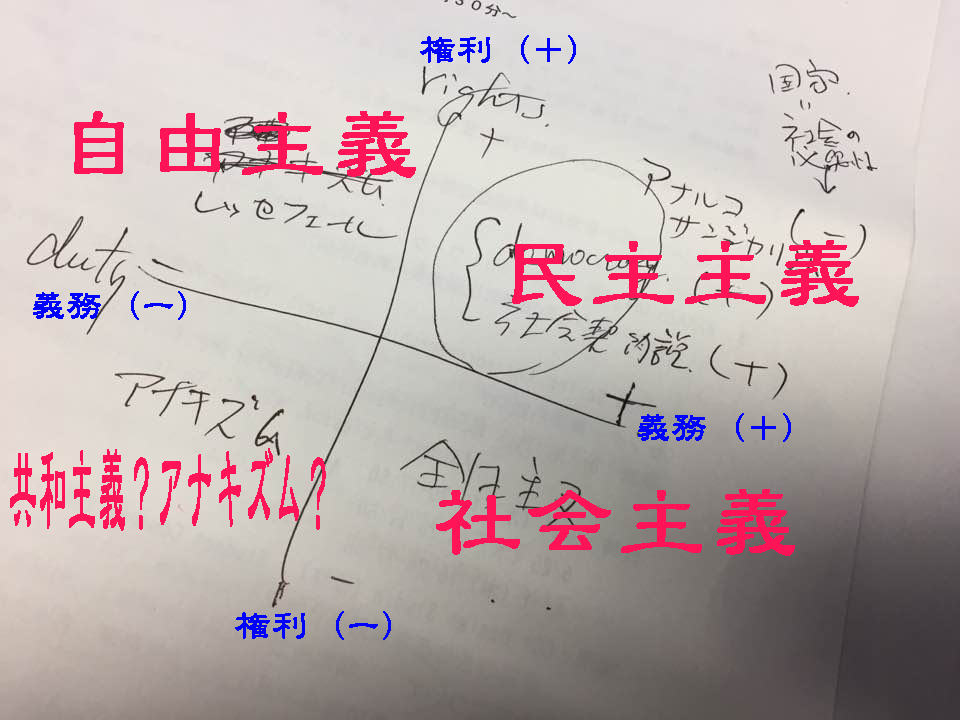 30分～
権利（＋）
rights.
＋
国家
〃
社会の
必要性
↓
自由主義
アナキズム
レッセフェール
アナルコ
サンジカリ（－）
duty －
義務（－）
democracy（＋）
民主主義
社会契約説.（＋）
＋
義務（＋）
アナキズム
共和主義？アナキズム？
全体主義
社会主義
－
権利（－）